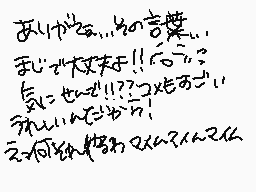 ありがてぇ…その言葉…
まじで大丈夫よ!!
気にせんで!!??コメもすごい
うれしいんだから!
えっ何それゆるわマイムマイムマイム